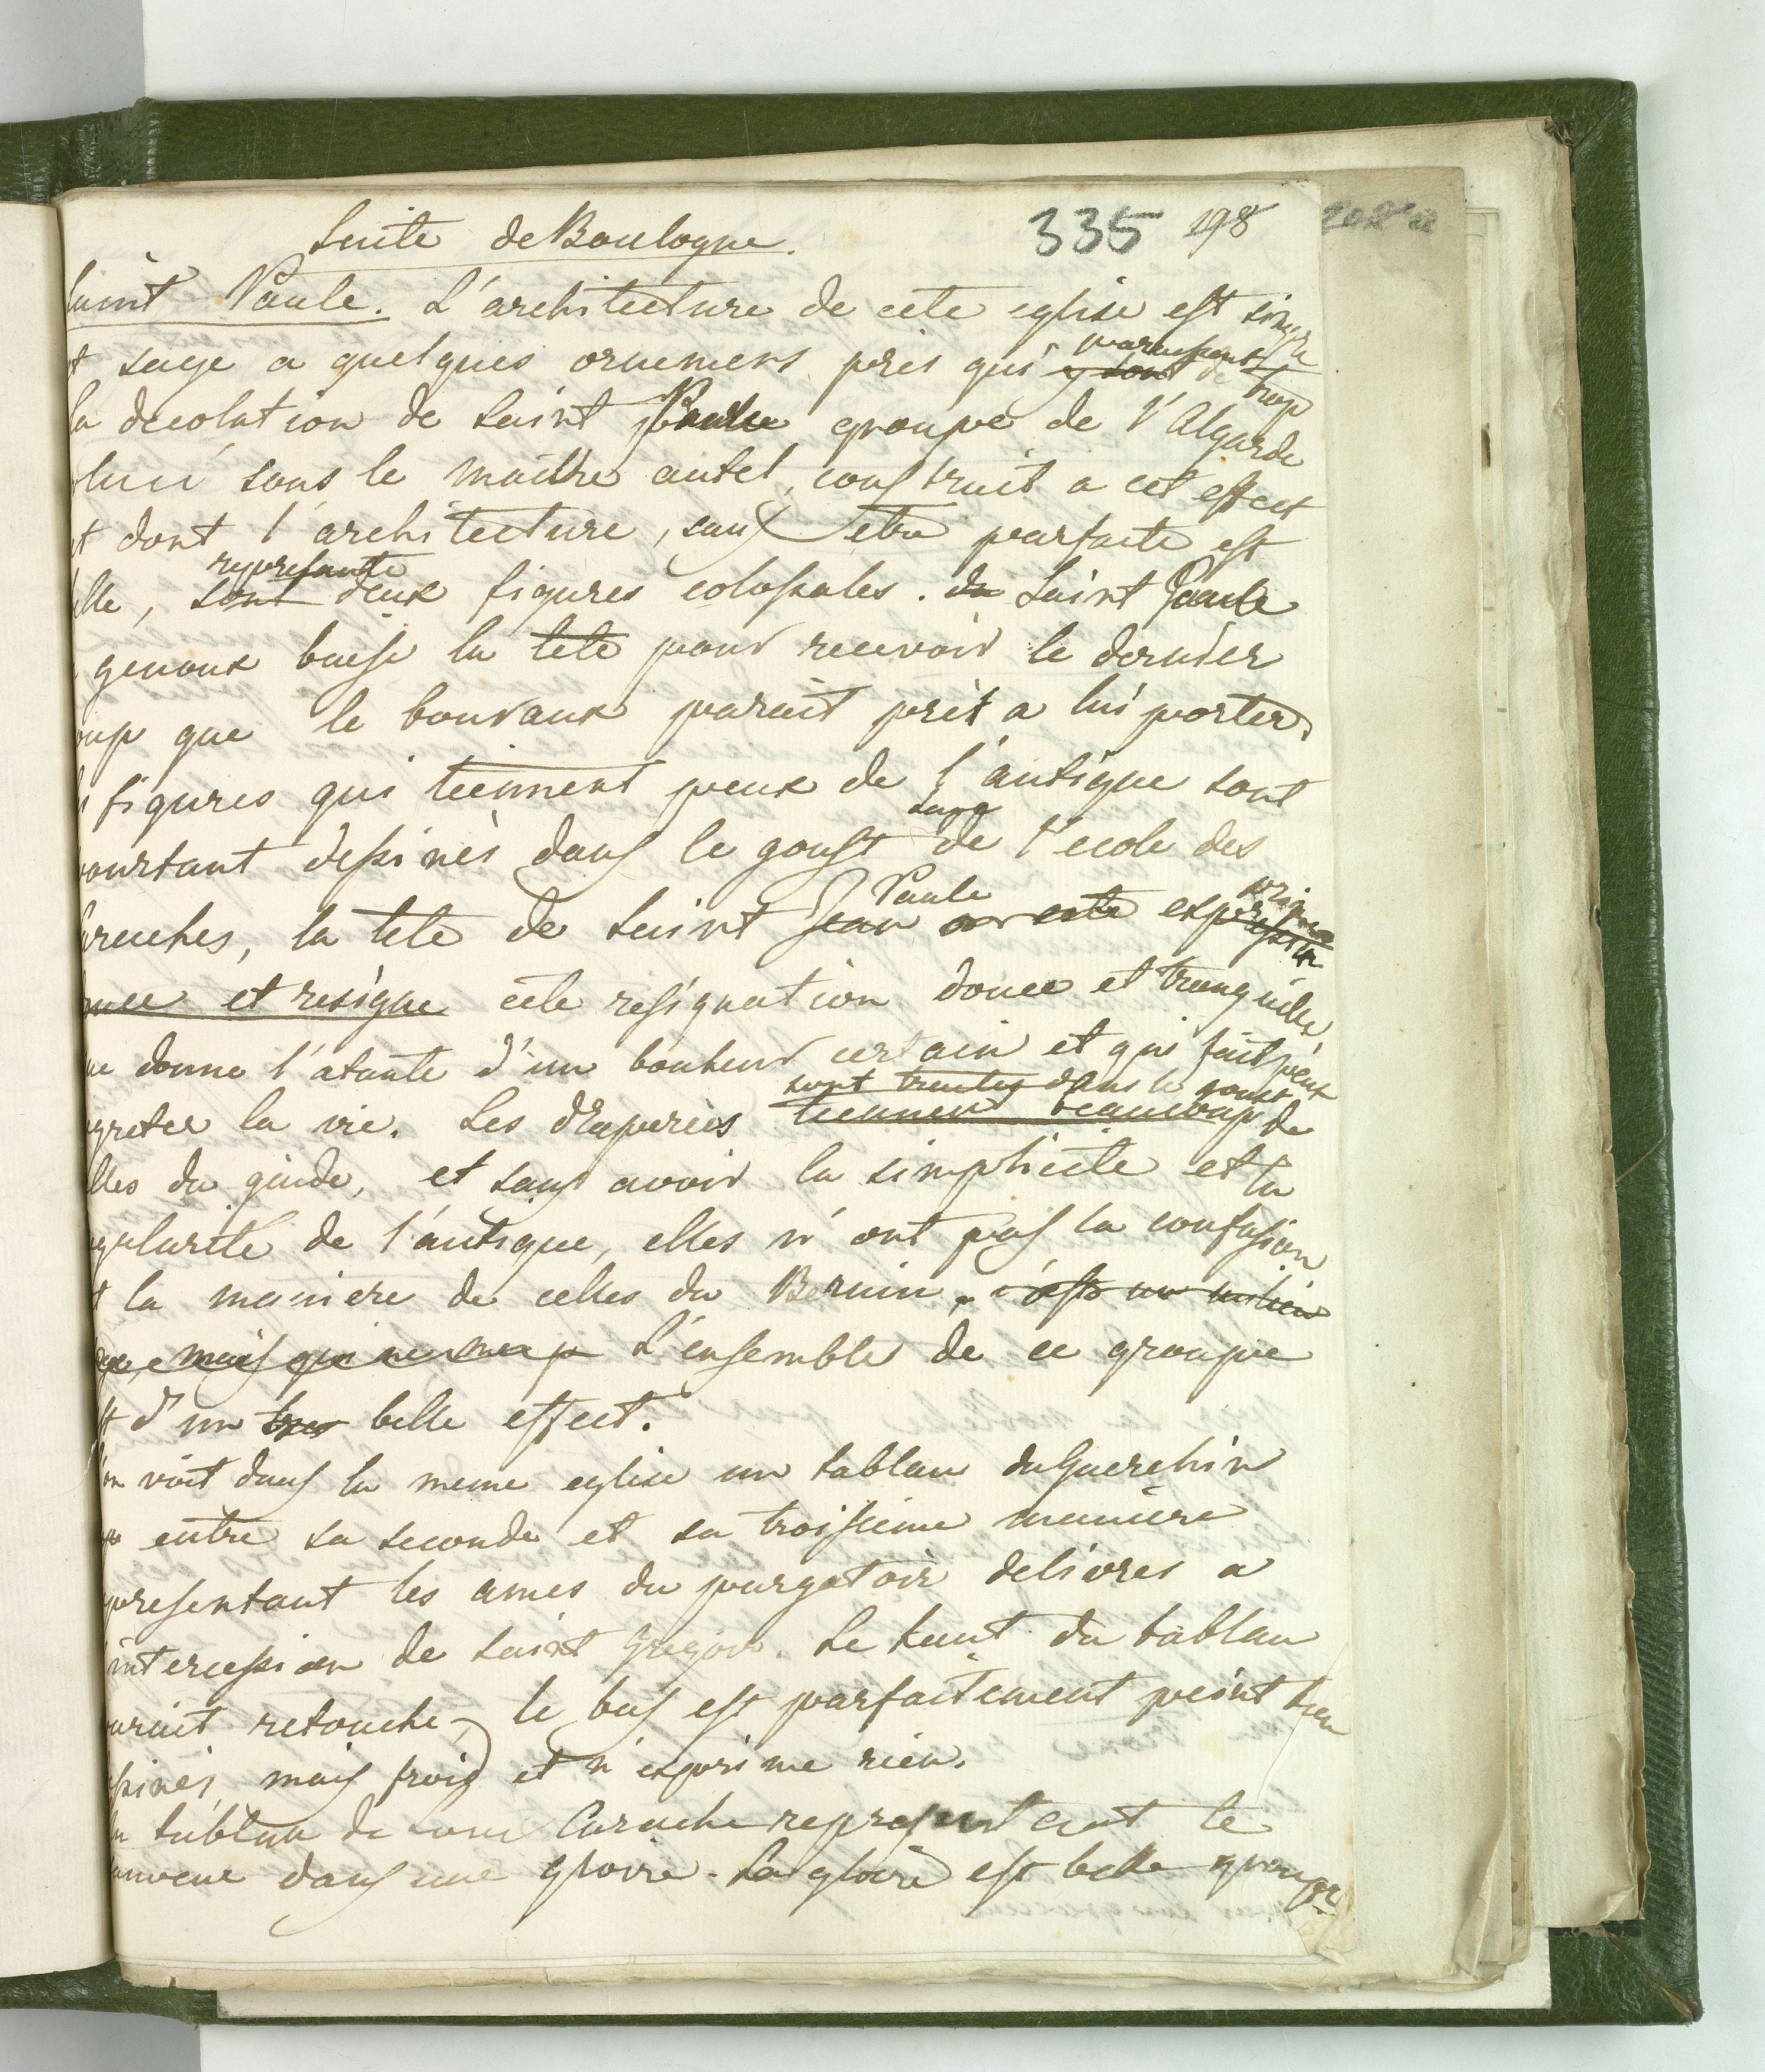 Suite de Boulogne. 335 198
Saint Paule. L'architecture de cete eglise est simple
et sage a quelques ornemens près qui y sont paraissent de trop
la decolation de Saint Paule groupe de l'Algarde
placé sous le maitre autel, construit a cet effect
et dont l'architecture, sans etre parfaite est
belle, sont represante deux figures colossales. de Saint Paule
genoux baisse la tete pour recevoir le dernier
oup que le bouraux parait prèt a lui porter.
figures qui tiennent peux de l'antique sont
pourtant dessinès dans le goust sage de l'ecole des
araches, la tete de Saint Jean Paule a cete expression exprime
ouce et resigne cete resignation douce et tranquille
ue donne l'atante d'un bonheur certain et qui fait peux
egreter la vie. Les draperies tiennent beaucoup sont traitès dans le goust de
lles du guide, et sans avoir la simplicite et la
egularite de l'antique, elles n'ont pas la confusion
et la maniere de celles du Bernin. c'est un milieu
mais qui ne L'ensemble de ce groupe
st d'un tres belle effect.
on voit dans la meme eglise un tablau du Guerchin
entre sa seconde et sa troisieme maniere
presentant les ames du purgatoir delivres a
intercession de Saint Gregoir. Le haut du tablau
parait retouche, le bas est parfaitement peint bien
ssinés, mais froid et n'exprime rien.
un tablau de Louis Carache representent le
dans une gloire. La gloire est belle groupe